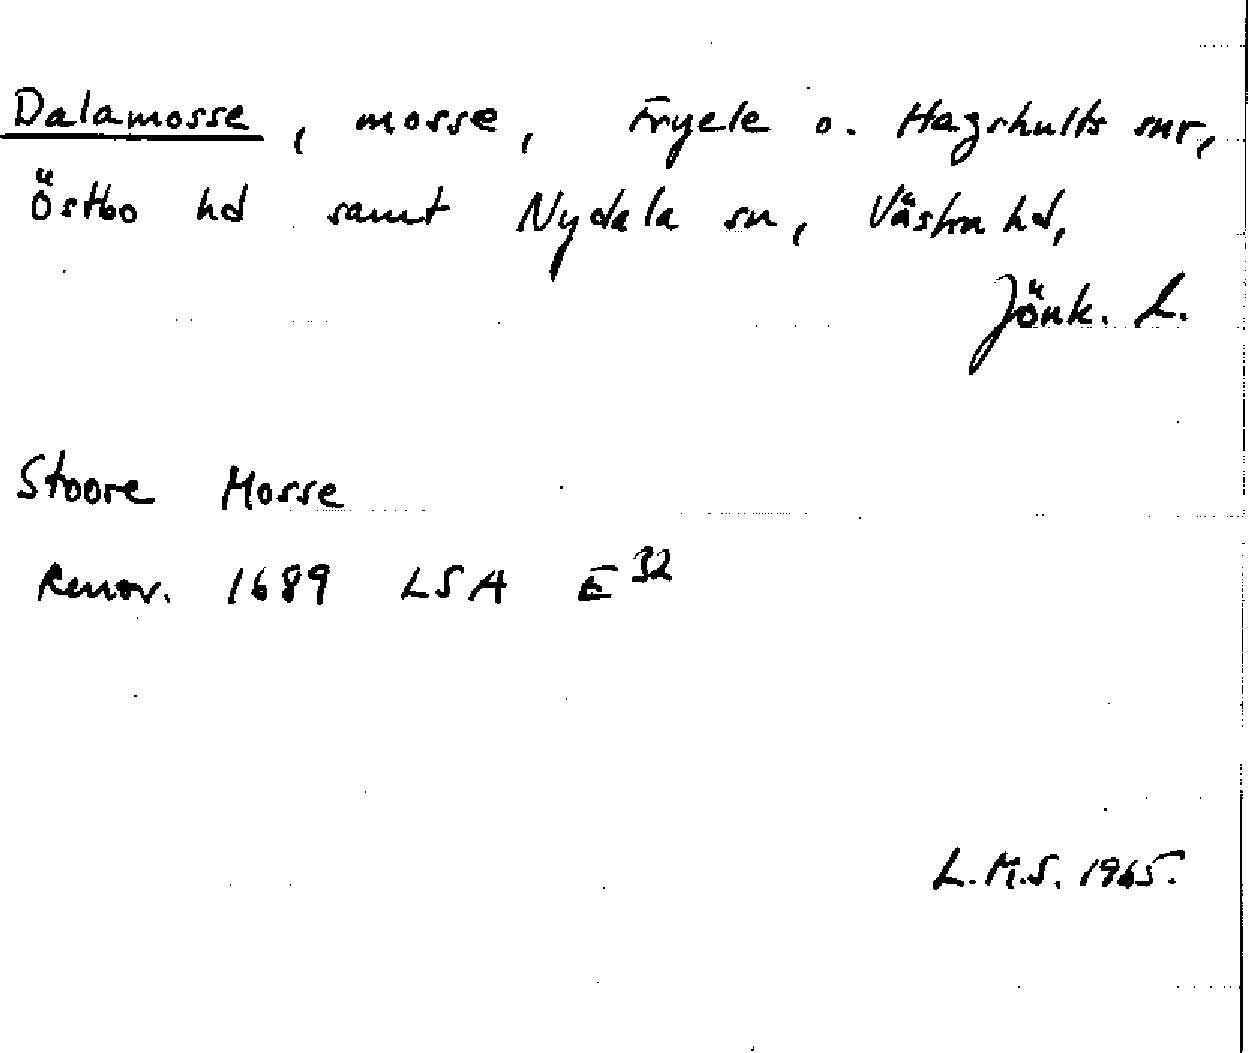 Dalamosse, mosse, Fryele o. Hagshults snr,
Östbo hd samt Nydala sn, Västra hd,
Jönk. L.
Stoore Mosse
Renov. 1689 LSA E 32
L.M.S. 1965.